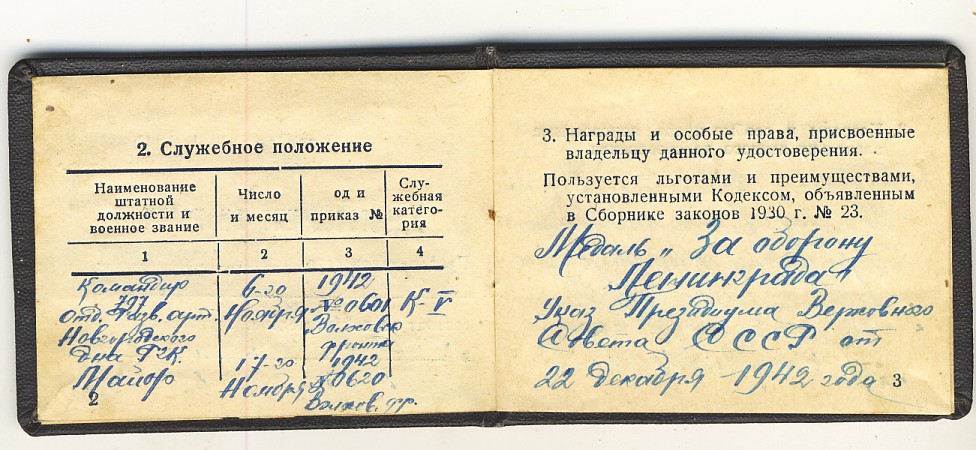 2. Служебное положение
Наименование штатной должности и военное звание
Число и месяц
од и приказ №
Слу-жебная катего-рия
1 2 3 4
Командир 6-20 1942
797 № 0601 К-V
отд. разв. арт. Ноября Волховск
Новгородского фронта
Майор 17-20 1942
Ноября № 0620
Волхов. фр.
2
3. Награды и особые права, присвоенные
владельцу данного удостоверения.
Пользуется льготами и преимуществами,
установленными Кодексом, объявленным
в Сборнике законов 1930 г. № 23.
Медаль „За оборону
Ленинграда"
Указ Президиума Верховного
Совета СССР от
22 декабря 1942 года
3